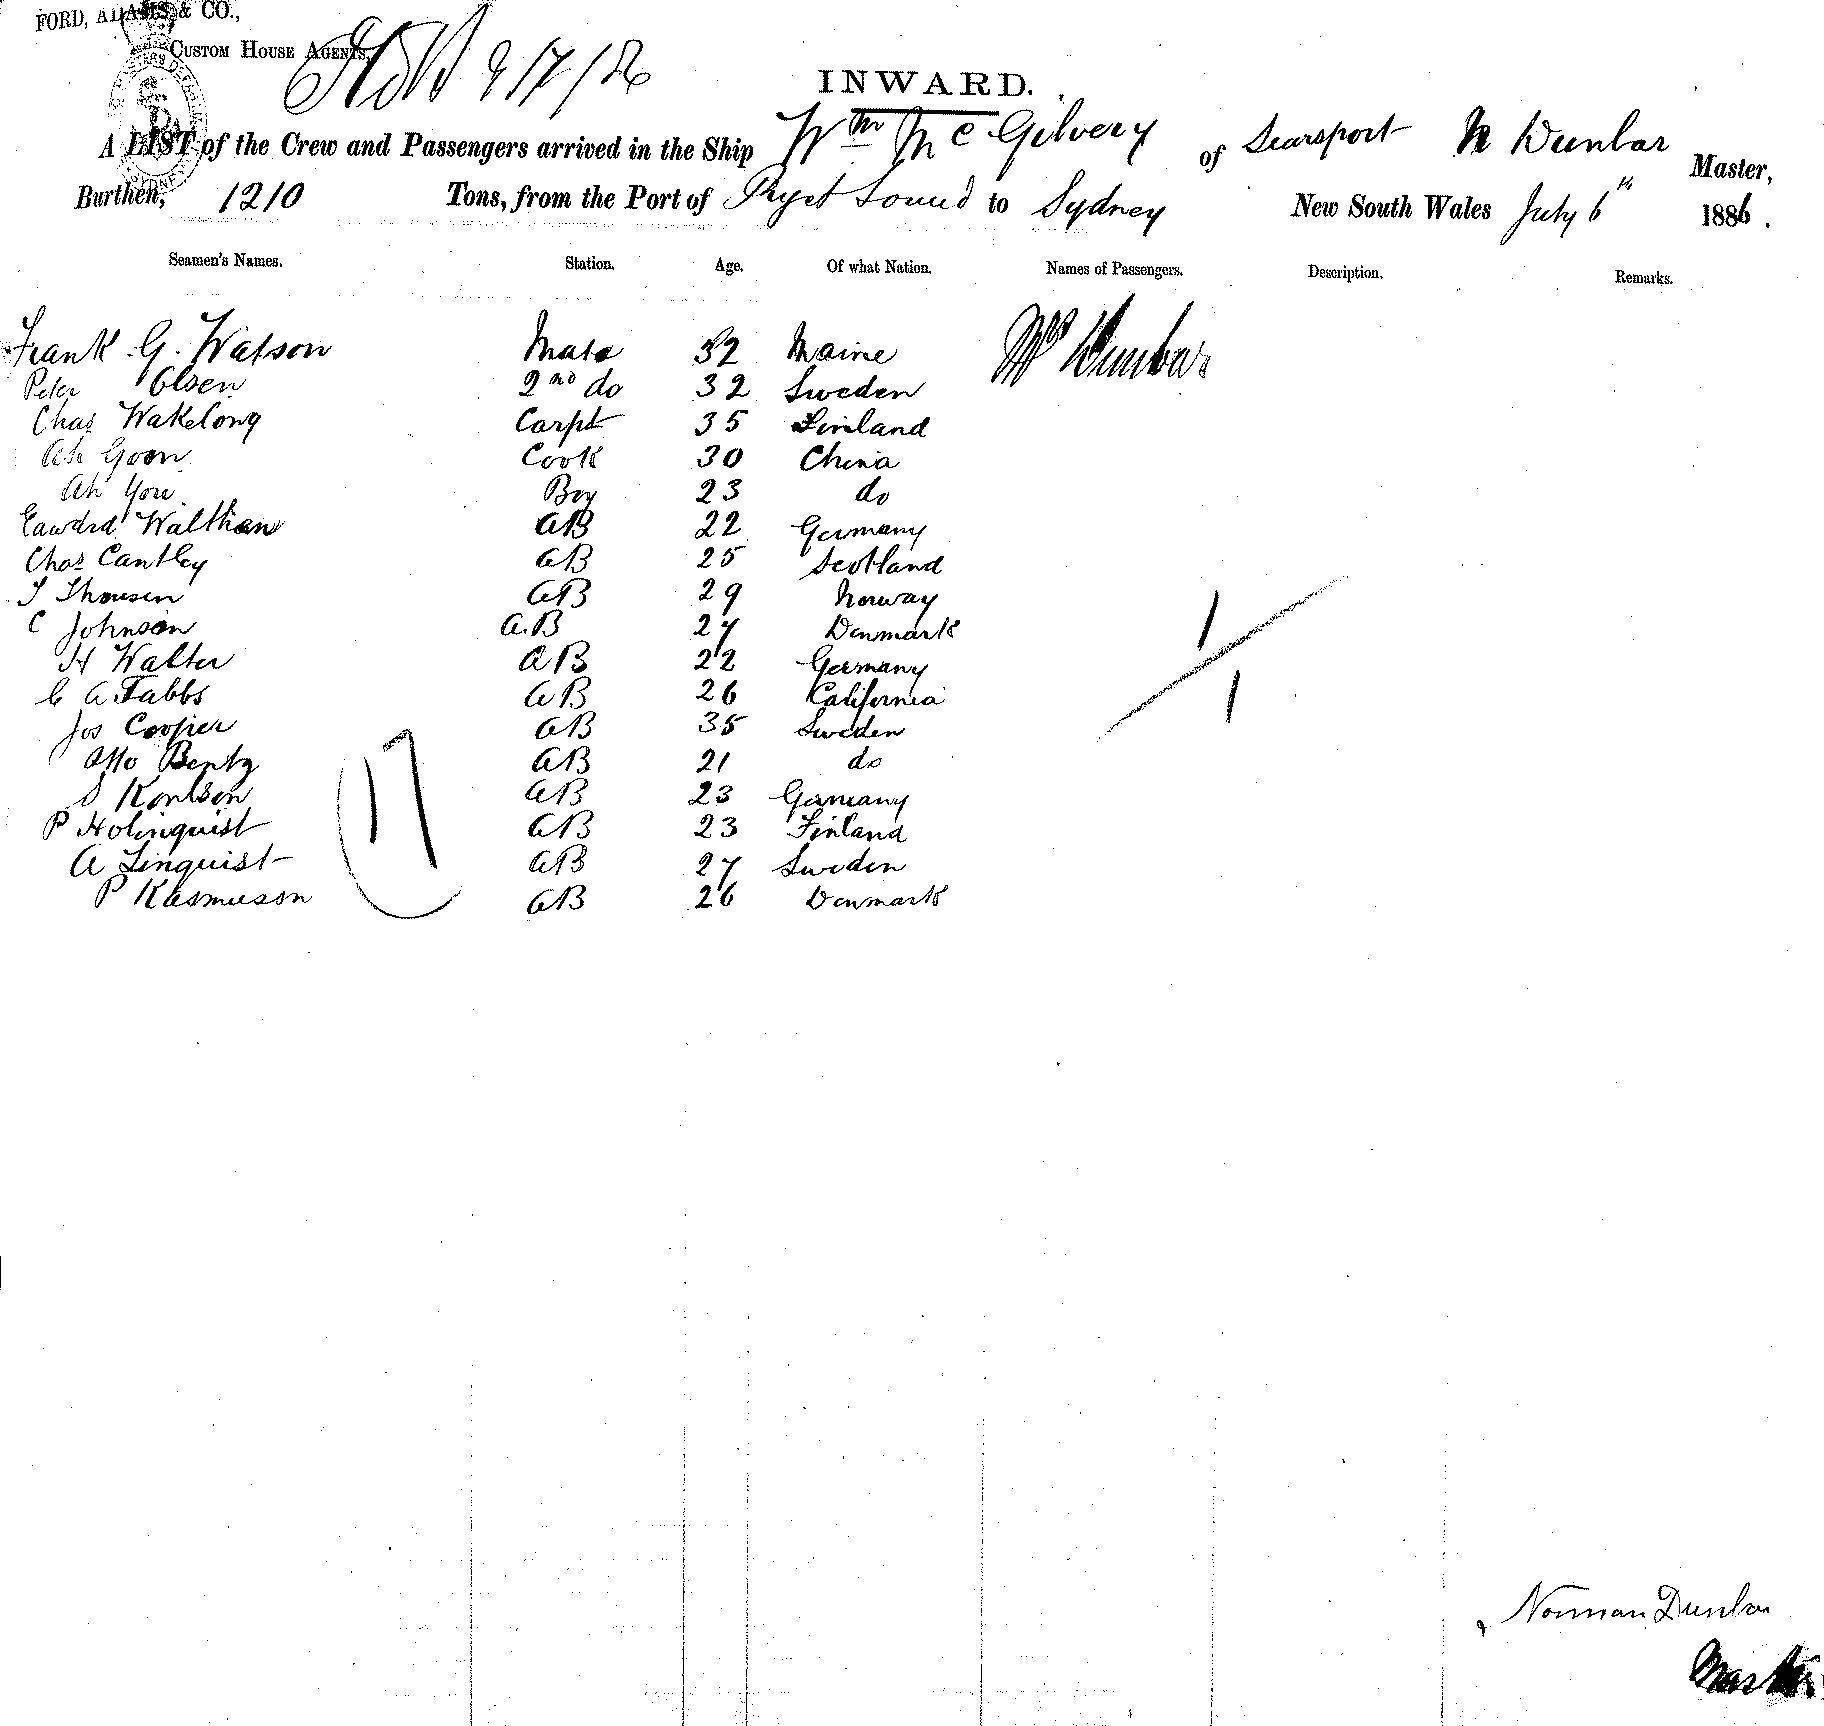 FORD, ADAMS & CO.,
CUSTOM HOUSE AGENTS,
INWARD.
A LIST of the Crew and Passengers arrived in the Ship Wm McGilvery of Searsport N Dunbar Master,
Burthen, 1210 Tons, from the Port of Puget Sound to Sydney New South Wales July 6th 1886.
Seamen's Names. Station. Age. Of what Nation. Names of Passengers. Description. Remarks.
Frank G. Watson Mate 32 Maine Mrs Dunbar
Peter Olsen 2nd do 32 Sweden
Chas Wakelong Carpt 35 Finland
Ah Goon Cook 30 China
Ah You Boy 23 do
Eawdrd Walthan AB 22 Germany
Chas Cantley AB 25 Scotland
T Thomsen AB 29 Norway
C Johnson A.B 27 Denmark
H Walter AB 22 Germany
C A Tabbs AB 26 California
Jos Cooper AB 35 Sweden
Otto Bentz AB 21 do
Konlson AB 23 Germany
P Holmquist AB 23 Finland
A Linquist AB 27 Sweden
P Rasmuson AB 26 Denmark
17
1/1
Norman Dunbar
Master